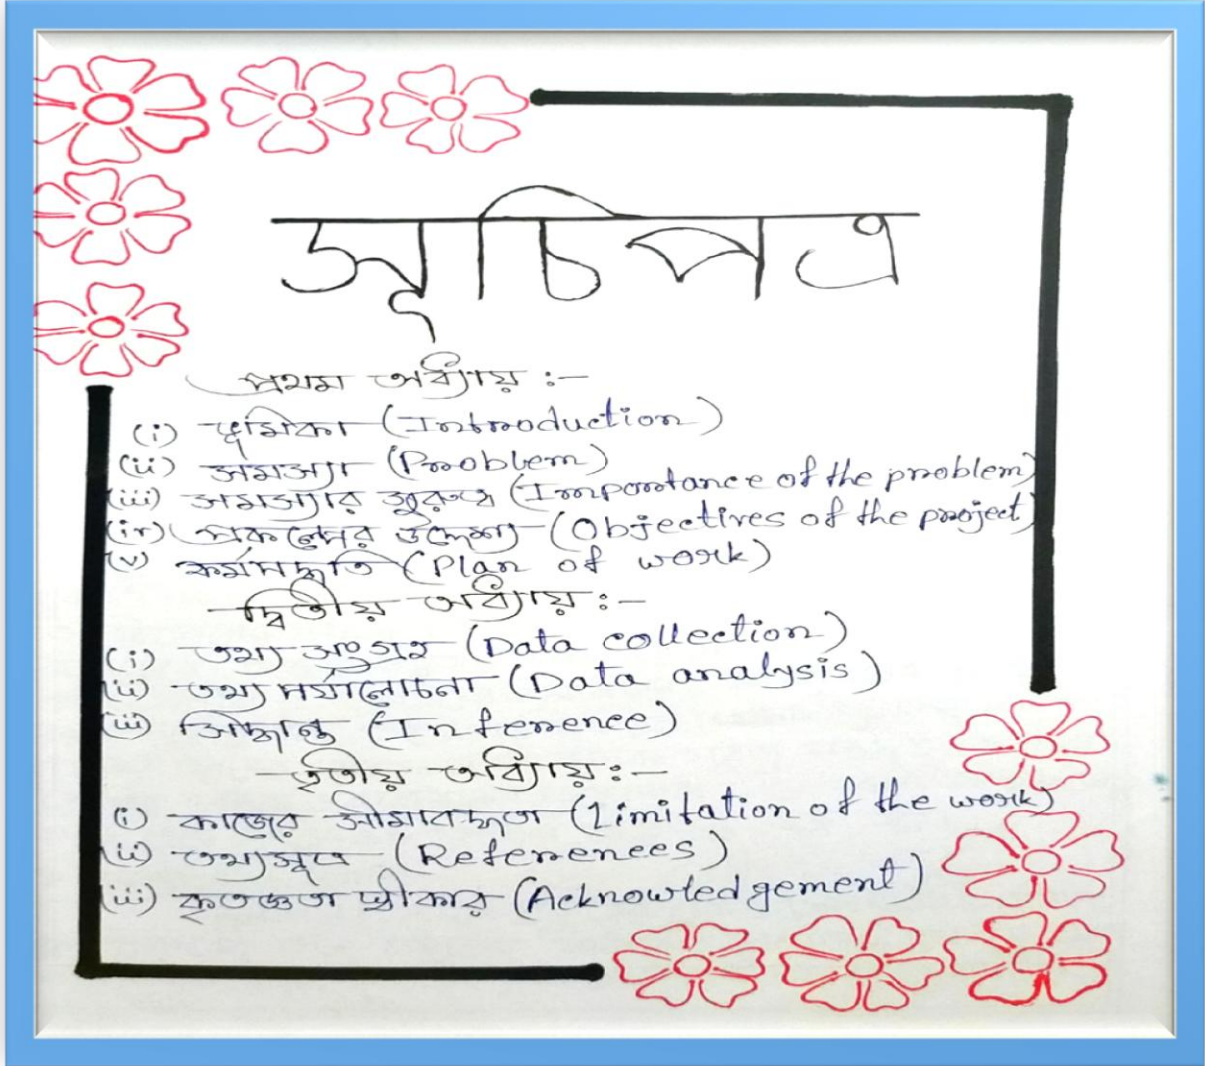 সূচিপত্র
প্রথম অধ্যায় :-
(i) ভূমিকা (Introduction)
(ii) সমস্যা (Problem)
(iii) সমস্যার গুরুত্ব (Importance of the problem)
(iv) প্রকল্পের উদ্দেশ্য (Objectives of the project)
(v) কর্মপদ্ধতি (Plan of work)
দ্বিতীয় অধ্যায় :-
(i) তথ্য সংগ্রহ (Data collection)
(ii) তথ্য পর্যালোচনা (Data analysis)
(iii) সিদ্ধান্ত (Inference)
তৃতীয় অধ্যায় :-
(i) কাজের সীমাবদ্ধতা (Limitation of the work)
(ii) তথ্যসূত্র (References)
(iii) কৃতজ্ঞতা স্বীকার (Acknowledgement)